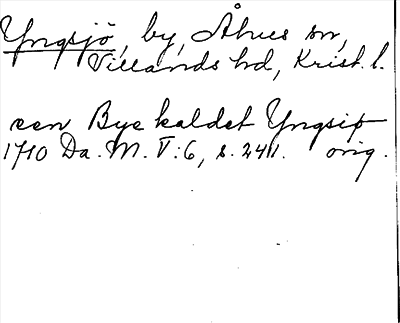 Yngsjö, by, Åhus sn,
Villands hd, Krist. l.
een Bye kaldet Yngsiø
1710 Da. M. V:6, s. 2411. orig.